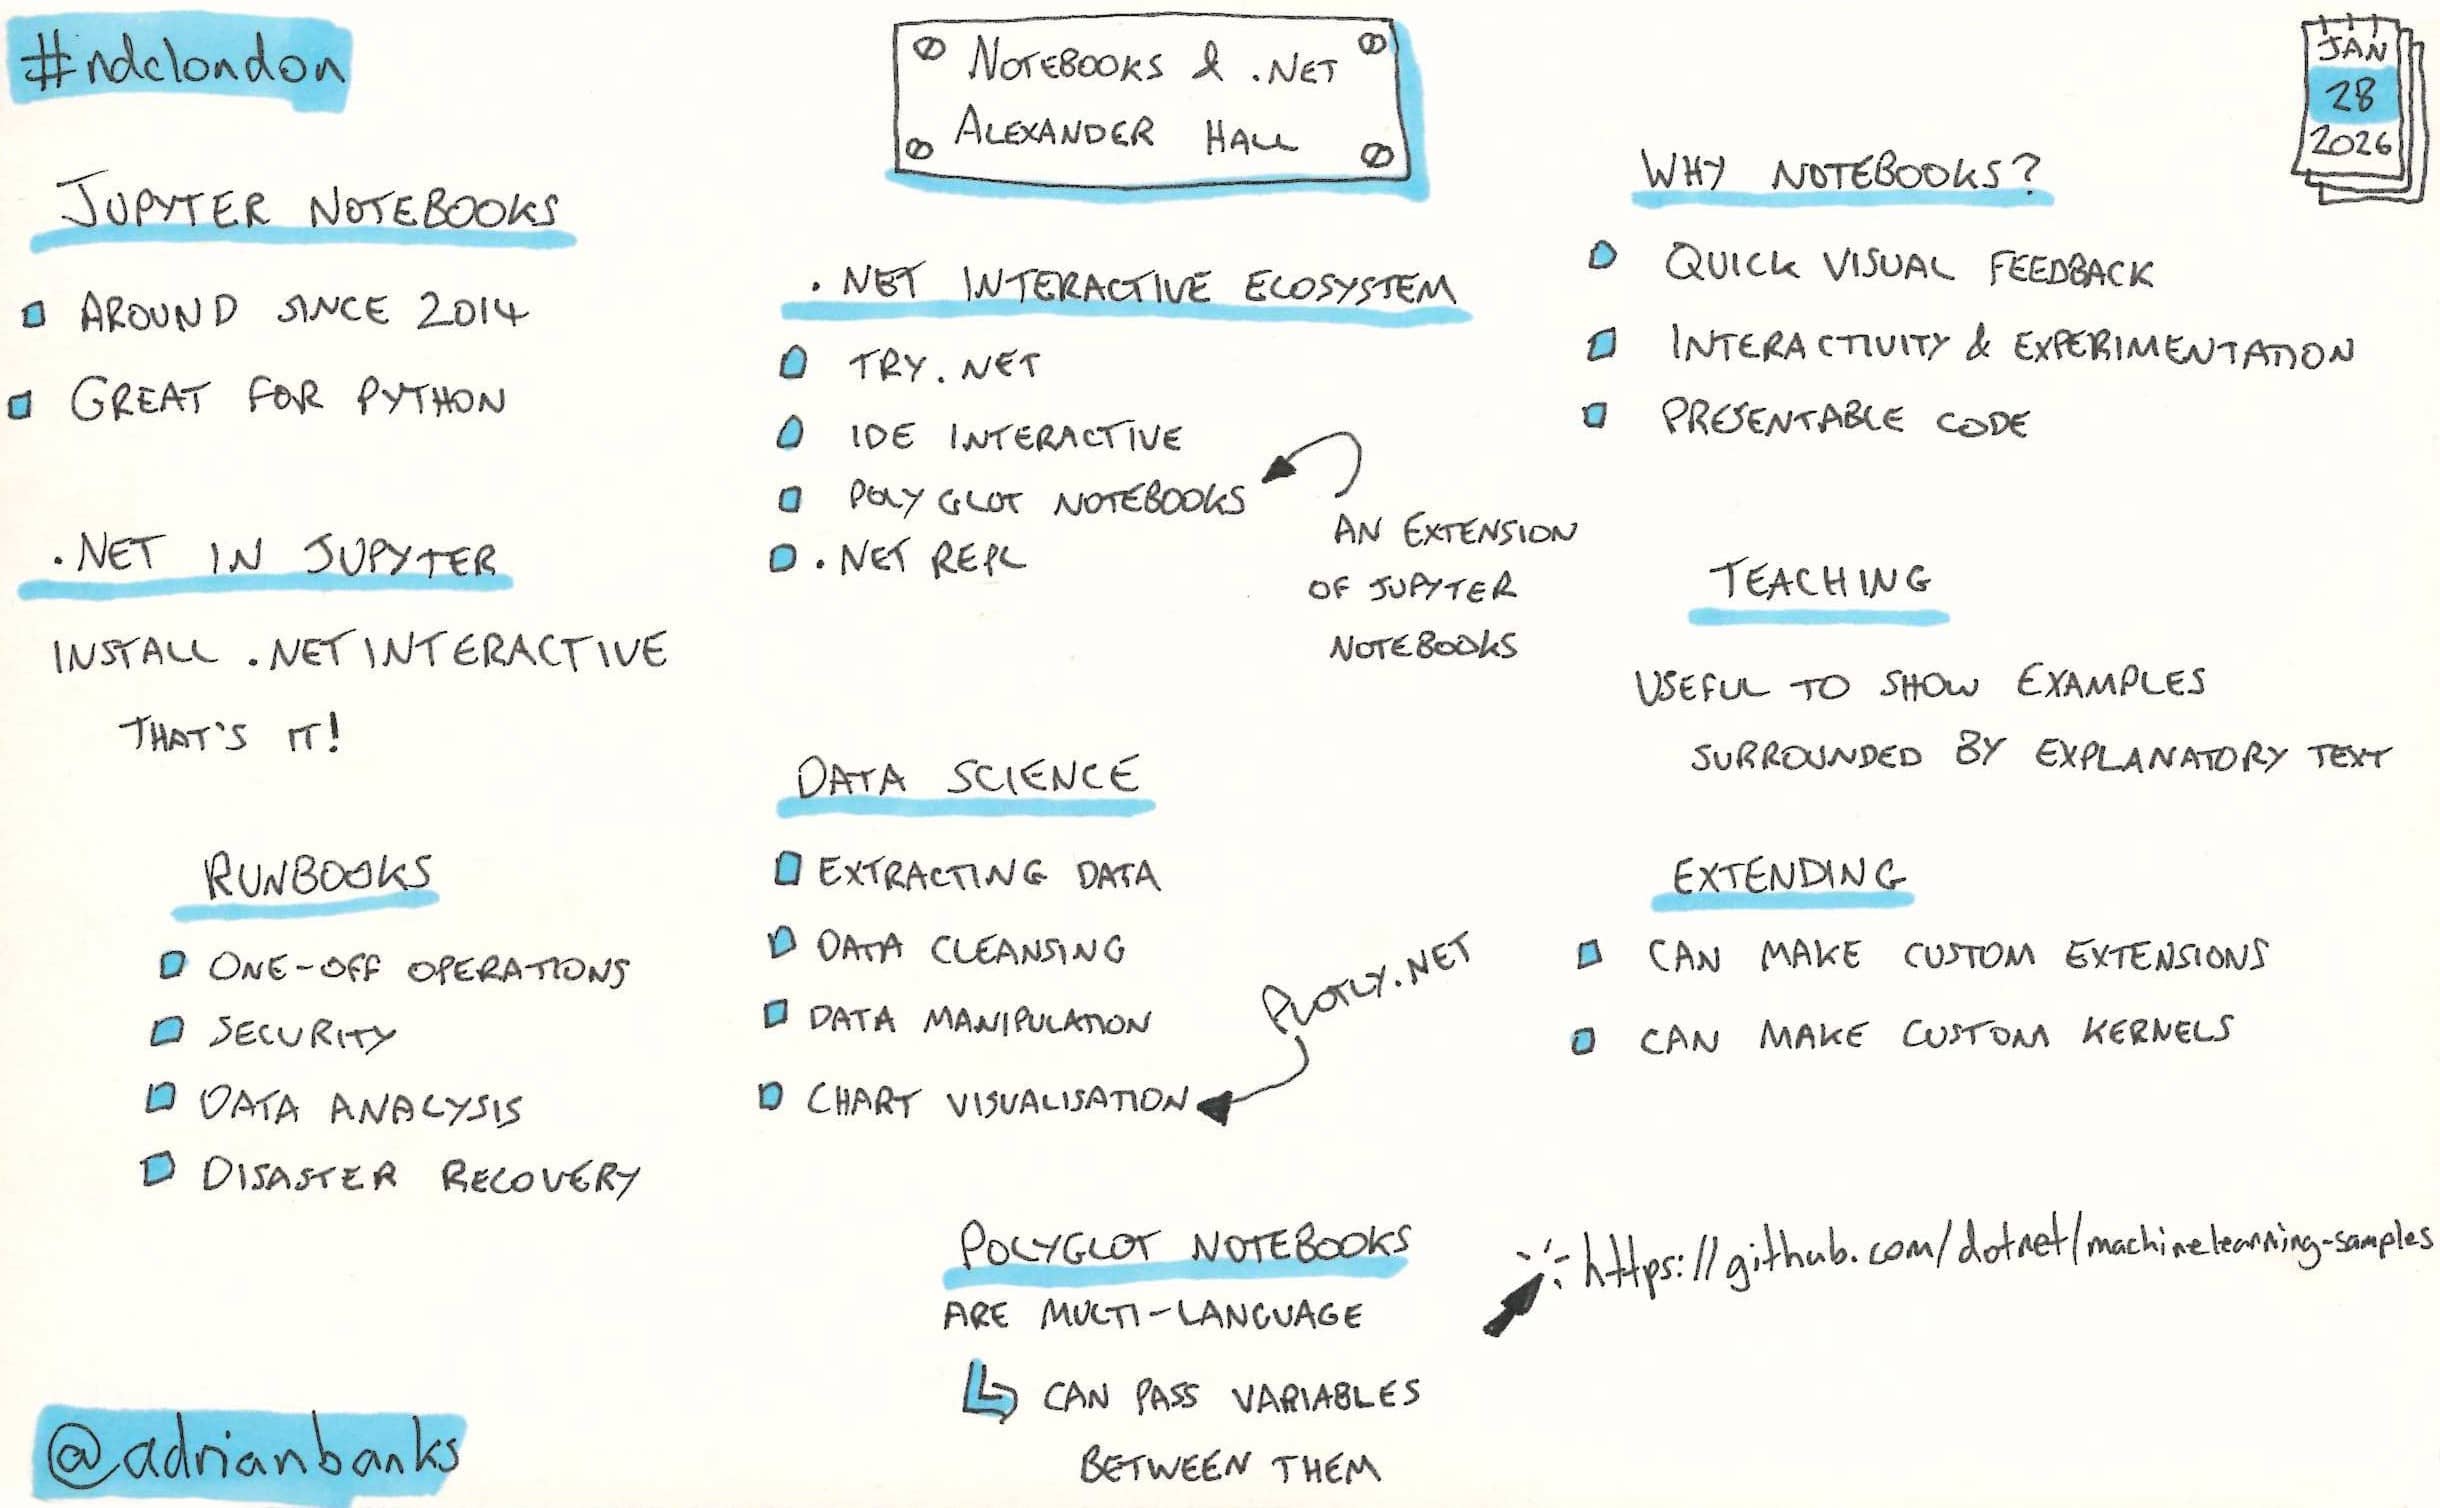 #ndclondon
NOTEBOOKS & .NET
ALEXANDER HALL
JAN
28
2026
JUPYTER NOTEBOOKS
AROUND SINCE 2014
GREAT FOR PYTHON
.NET IN JUPYTER
INSTALL .NET INTERACTIVE
THAT'S IT!
RUNBOOKS
ONE-OFF OPERATIONS
SECURITY
DATA ANALYSIS
DISASTER RECOVERY
.NET INTERACTIVE ECOSYSTEM
TRY.NET
IDE INTERACTIVE
POLYGLOT NOTEBOOKS
AN EXTENSION
OF JUPYTER
NOTEBOOKS
.NET REPL
DATA SCIENCE
EXTRACTING DATA
DATA CLEANSING
DATA MANIPULATION
CHART VISUALISATION
PLOTLY.NET
POLYGLOT NOTEBOOKS
ARE MULTI-LANGUAGE
CAN PASS VARIABLES
BETWEEN THEM
WHY NOTEBOOKS?
QUICK VISUAL FEEDBACK
INTERACTIVITY & EXPERIMENTATION
PRESENTABLE CODE
TEACHING
USEFUL TO SHOW EXAMPLES
SURROUNDED BY EXPLANATORY TEXT
EXTENDING
CAN MAKE CUSTOM EXTENSIONS
CAN MAKE CUSTOM KERNELS
https://github.com/dotnet/machinelearning-samples
@adrianbanks